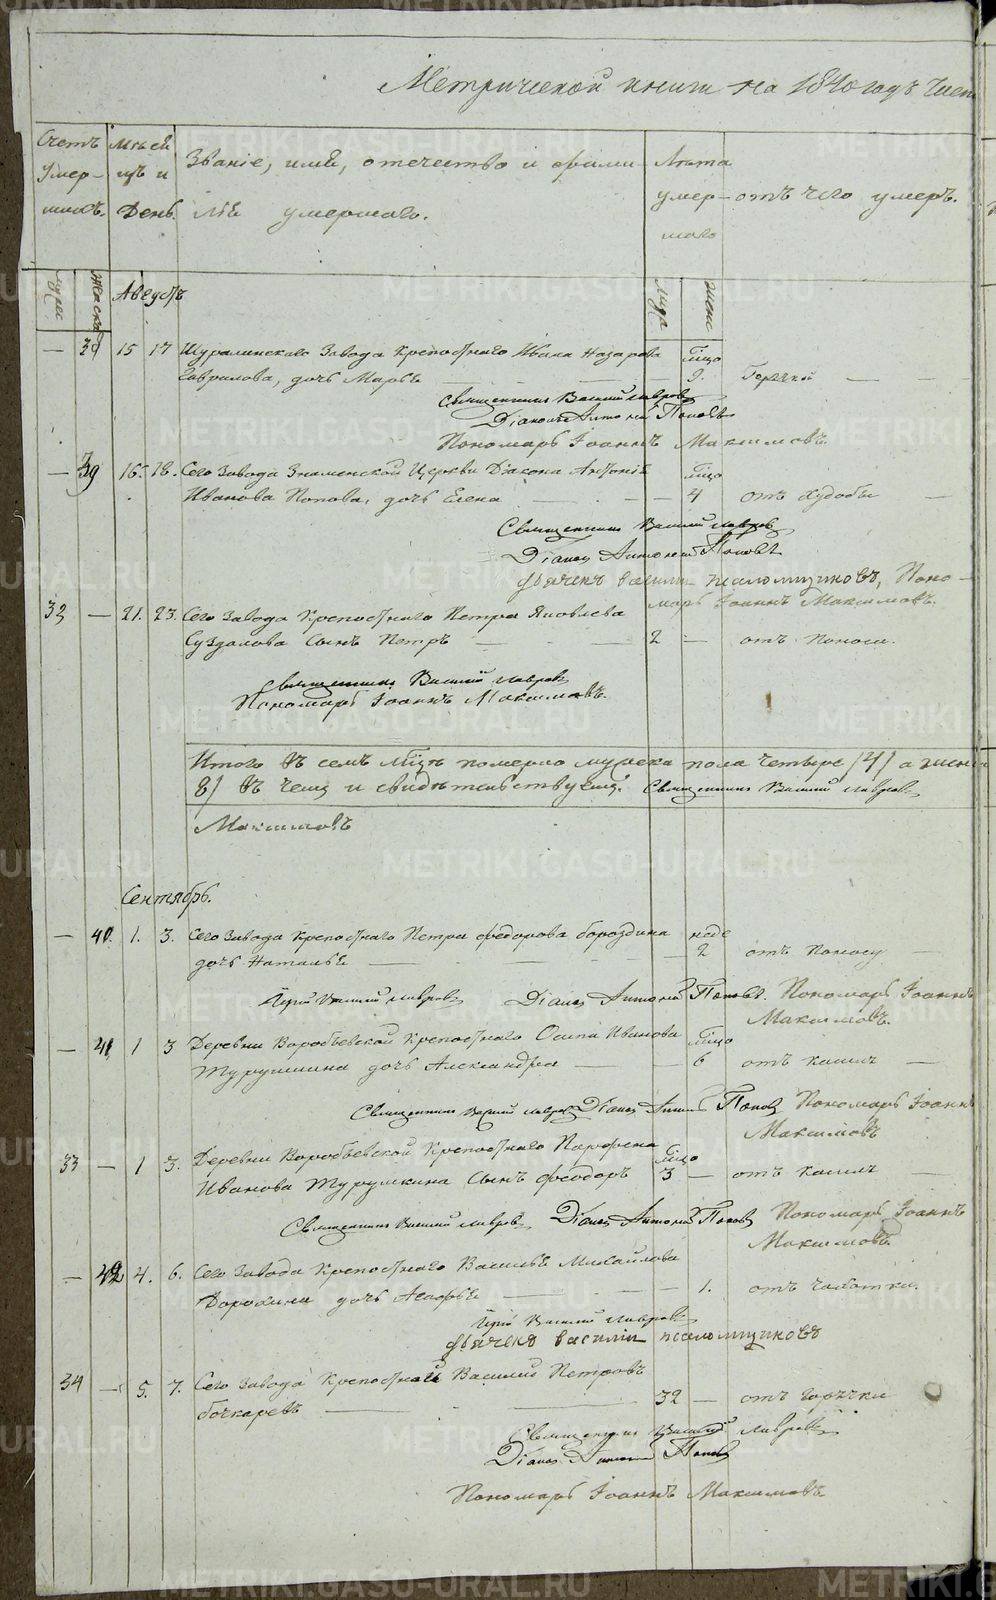 Метрической книги на 1840 годъ
Счетъ Умер-шихъ.
Мѣсяцъ и День.
Званіе, имя, отечество и фами-
лія умершаго.
Лѣта умер-шаго
отъ чего умеръ.
Август
38 15 17 Шуралинскаго Завода Крепостнаго Ивана Назарова мѣсяцо
Гаврилова, дочь Марья 9. Горячкой
Священникъ Василий Лавровъ
Діаконъ Антоній Поповъ
Пономарь Іоаннъ Максимовъ.
39 16. 18. Сего Завода Знаменской Церкви Діакона Антонія мѣсяцо
Иванова Попова, дочь Елена 4 отъ худобы
Священникъ Василий Лавровъ
Діаконъ Антоній Поповъ
Дьячекъ Василий Псаломщиковъ, Поно-
марь Іоаннъ Максимовъ.
32 21. 23. Сего Завода Крепостнаго Петра Яковлева
Суздалова Сынъ Петръ 2 отъ поноса.
Священникъ Василий Лавровъ
Пономарь Іоаннъ Максимовъ.
Итого въ семъ мѣсяцѣ померло мужеска пола четыре /4/ а женска
8/ въ чемъ и свидѣтельствуемъ. Священникъ Василий Лавровъ
Максимовъ
Сентябрь.
40. 1. 3. Сего Завода Крепостнаго Петра Федорова Бороздина
дочь Наталья 2 отъ поносу
Іерей Василий Лавровъ Діаконъ Антоній Поповъ. Пономарь Іоаннъ
Максимовъ.
41 1 3 Деревни Воробьевской Крепостнаго Осипа Иванова мѣсяцо
Турушкина дочь Александра 6 отъ кашля
Священникъ Василий Лавровъ Діаконъ Антоній Поповъ Пономарь Іоаннъ
Максимовъ
33 1 3. Деревни Воробьевской Крепостнаго Парфена мѣсяцо
Иванова Турушкина Сынъ Феодоръ 3 отъ кашля
Священникъ Василий Лавровъ Діаконъ Антоній Поповъ Пономарь Іоаннъ
Максимовъ.
42 4. 6. Сего Завода Крепостнаго Василья Михайлова
Дорохина дочь Агафья 1. отъ чахотки.
Іерей Василий Лавровъ
Дьячекъ Василий Псаломщиковъ
34 5. 7. Сего Завода Крепостной Василий Петровъ
Бочкаревъ 32 отъ горячки
Священникъ Василий Лавровъ
Діаконъ Антоній Поповъ
Пономарь Іоаннъ Максимовъ
METRIKI.GASO-URAL.RU